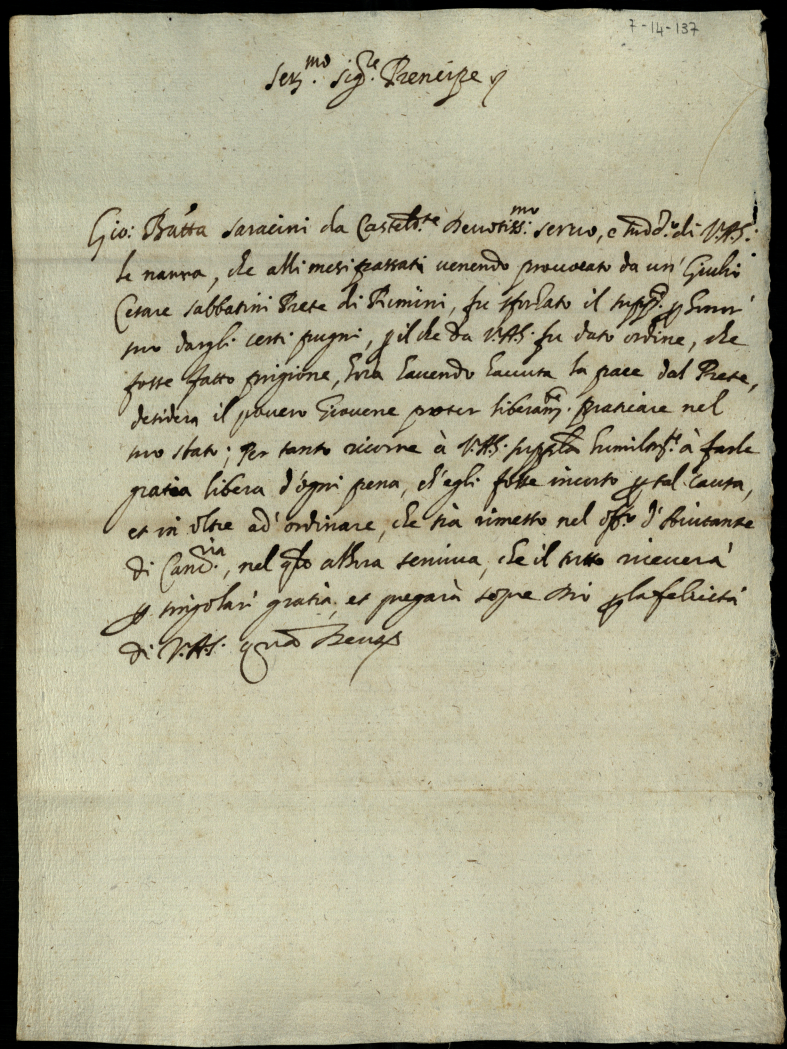 7-14-137
Ser.mo Sig.re Prencipe
Gio: Batta Saracini da Casteld.te Devotiss.mo servo, e sudd.o di V.A.S.
le narra, che alli mesi passati venendo provocato da un' Giulio
Cesare Sabbatini Prete di Rimini, fu sforzato il supp.e p honor'
suo dargli certi pugni, p il che da V.A.S. fu dato ordine, che
fosse fatto prigione, hora havendo havuta la pace dal Prete,
desidera il povero Giovene poter liberam.te praticare nel
suo stato; Per tanto ricorre à V.A.S. supp.la humilm.te à farle
gratia libera d'ogni pena, ch'egli fosse incorso p tal causa,
et in oltre ad' ordinare, che sia rimesso nel off.o d'Aiutante
di Canc.ria, nel q.le all'hora serviva, che il tutto riceverà
p singolari gratia, et pregarà sempre Dio p la felicità
di V.A.S. q